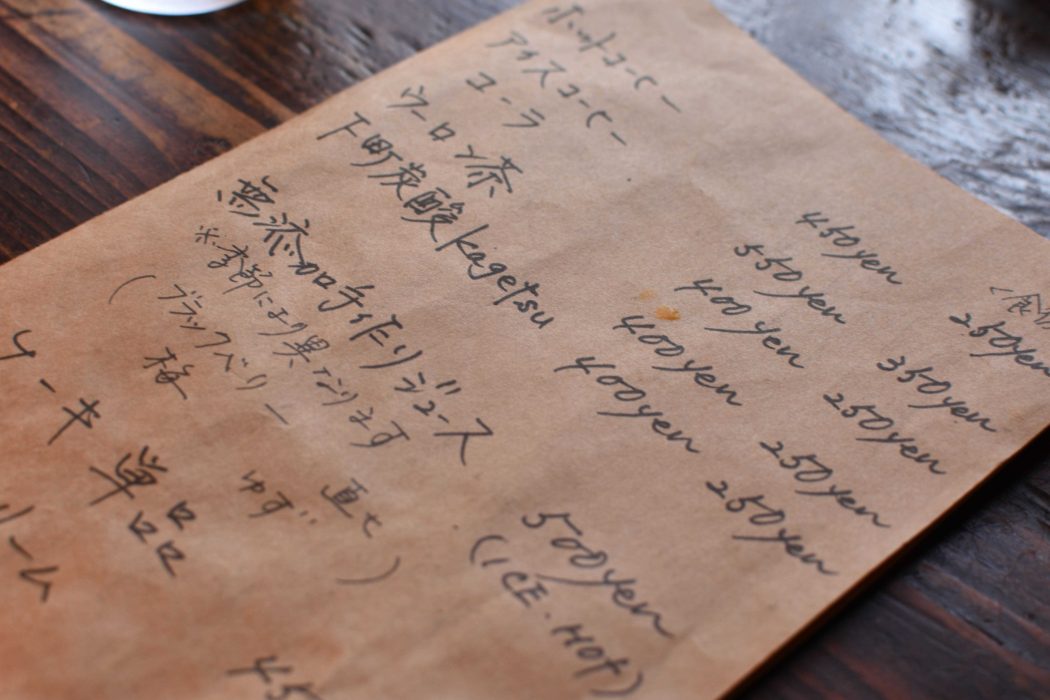 ホットコーヒー 450yen 250yen
アイスコーヒー 550yen 350yen
コーラ 400yen 250yen
ウーロン茶 400yen 250yen
下町炭酸kagetsu 400yen 250yen
無添加手作りジュース 500yen
※季節により異なります (ICE・HOT)
(ブラックベリー
ゆず
ケーキ単品 45
リーム